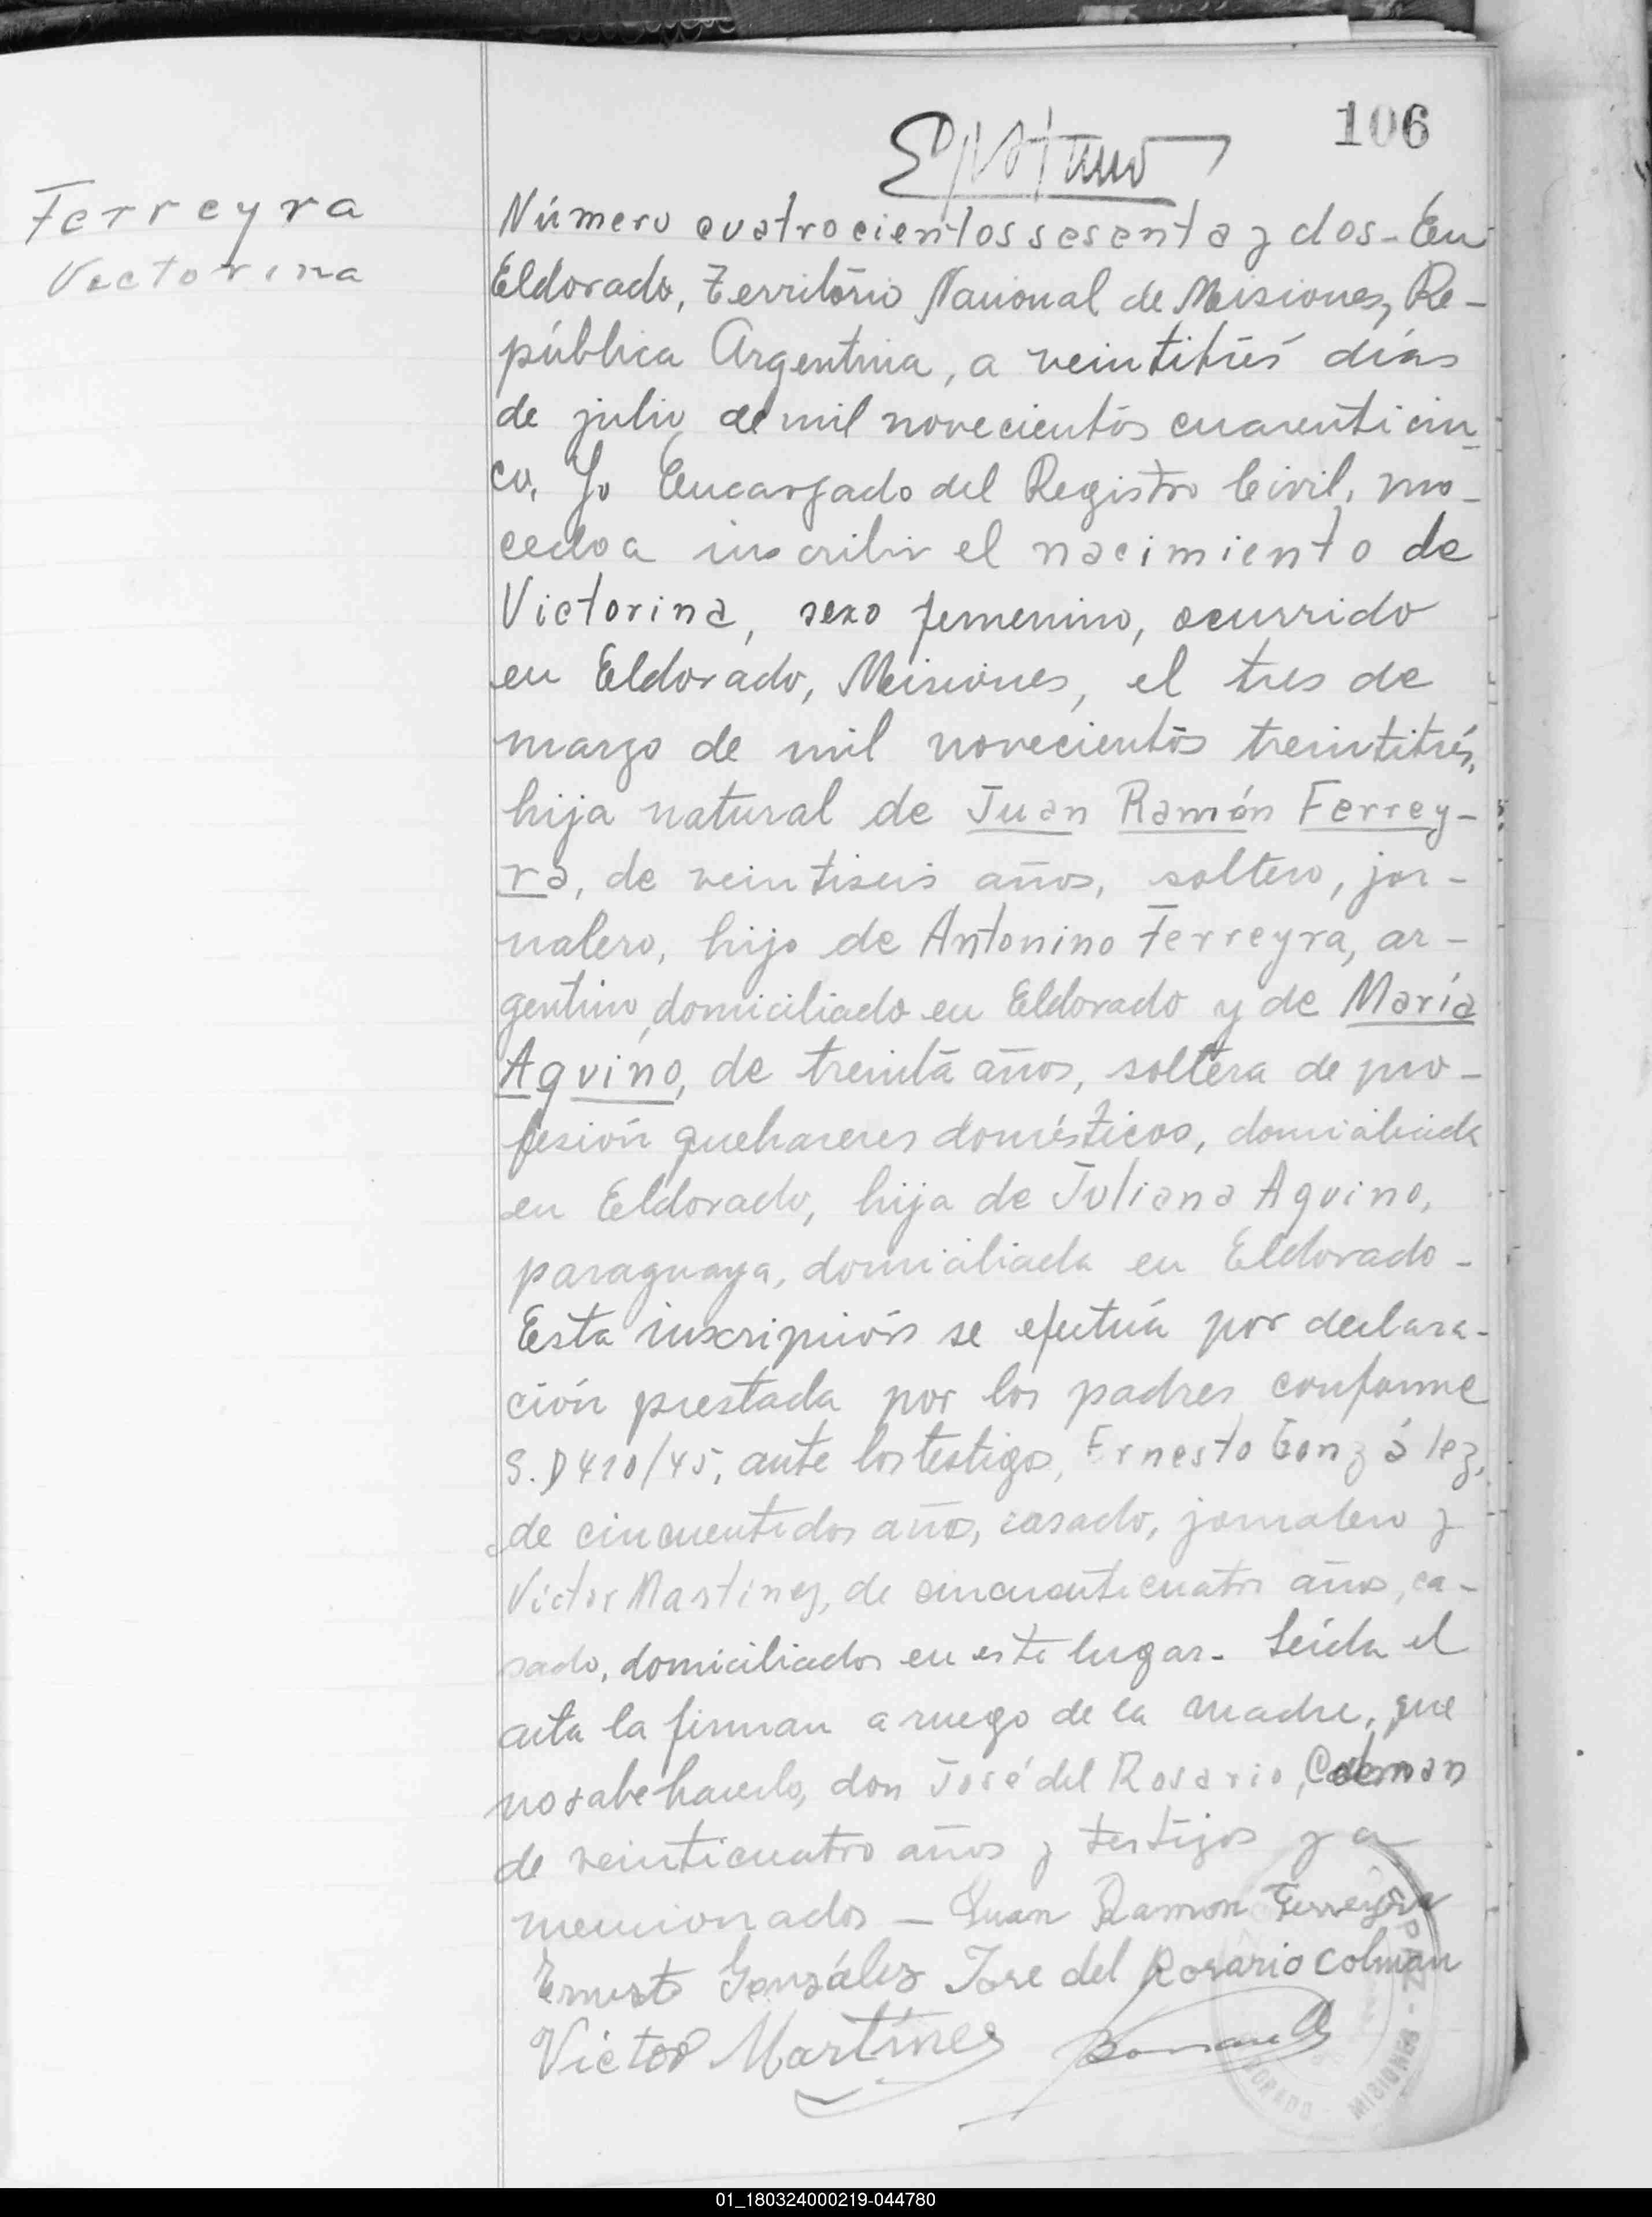 106
Ferreyra
Victorina
Número cuatrocientos sesenta y dos - En
Eldorado, Territorio Nacional de Misiones, Re-
pública Argentina, a veintitrés días
de julio de mil novecientos cuarenticin
co, Yo Encargado del Registro Civil, pro-
cedo a inscribir el nacimiento de
Victorina, sexo femenino, ocurrido
en Eldorado, Misiones, el tres de
marzo de mil novecientos treintitrés,
hija natural de Juan Ramón Ferrey-
ra, de veintiseis años, soltero, jor-
nalero, hijo de Antonino Ferreyra, ar-
gentino, domiciliado en Eldorado y de María
Aquino, de treinta años, soltera de pro-
fesión quehaceres domésticos, domiciliada
en Eldorado, hija de Juliana Aquino,
paraguaya, domiciliada en Eldorado -
Esta inscripción se efectúa por declara-
ción prestada por los padres conforme
S. D 410/45, ante los testigos, Ernesto González,
de cincuentidos años, casado, jornalero y
Víctor Martinez, de cincuenticuatro años, ca-
sado, domiciliados en este lugar. Leída el
acta la firman a ruego de la madre, que
no sabe hacerlo, don José del Rosario Colman
de veinticuatro años y testigos ya
mencionados - Juan Ramon Ferreyra
Ernesto González Jose del Rosario Colman
Victor Martínez
MISIONES
01_180324000219-044780